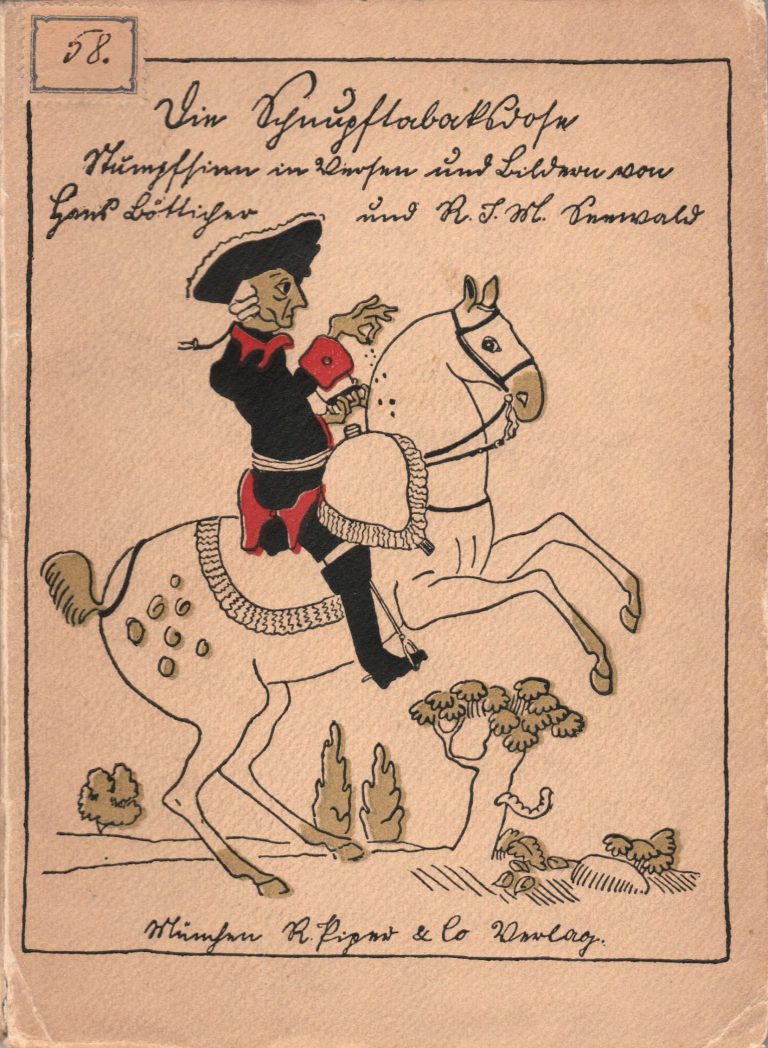 58.
Die Schnupftabaksdose
Stumpfsinn in Versen und Bildern von
Hans Bötticher und R. J. M. Seewald
München R. Piper & Co Verlag.